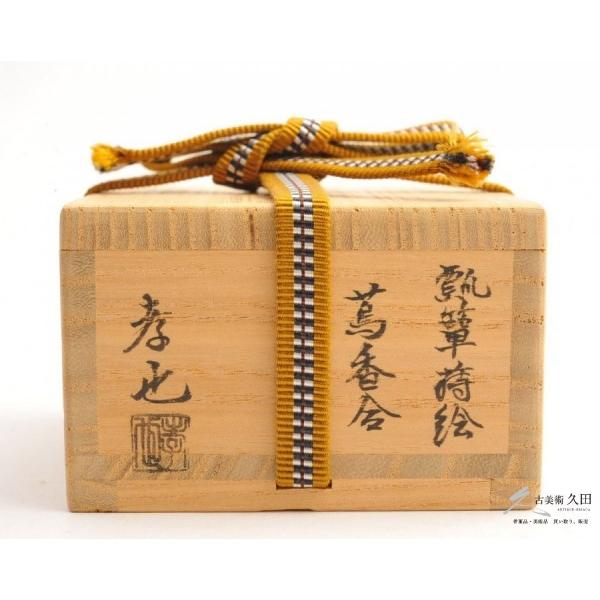 瓢箪蒔絵
蔦香合
孝也
古美術 久田
骨董品・美術品 買い取り、販売